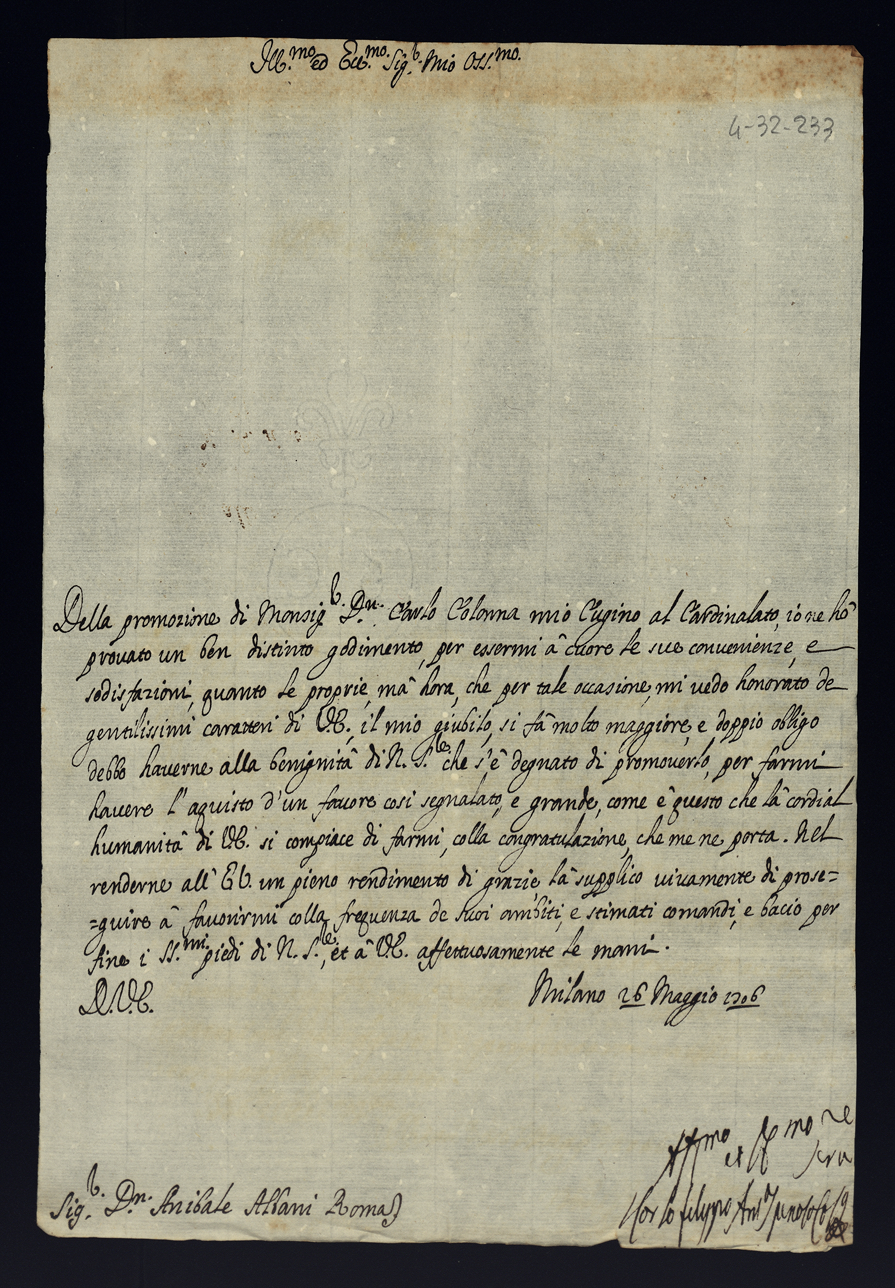 Ill.mo ed Ecc.mo Sig.r Mio Oss.mo
4-32-233
Della promozione di Monsig.r D.n Carlo Colonna mio Cugino al Cardinalato, io ne hò
provato un ben distinto godimento, per essermi â cuore le sue convenienze, e
sodisfazioni, quanto le proprie, mâ hora, che per tale occasione, mi vedo honorato de
gentilissimi caratteri di V.E., il mio giubilo, si fâ molto maggiore, e doppio obligo
debbo haverne alla benignitâ di N. S.re che s'ê degnato di promoverlo, per farmi
havere l'aquisto d'un favore cosi segnalato, e grande, come ê questo che lâ cordial
humanitâ di V.E. si compiace di farmi, colla congratulazione, che me ne porta. Nel
renderne all' E.V. un pieno rendimento di grazie lâ supplico vivamente di prose=
=guire â favorirmi colla frequenza de suoi ambiti, e stimati comandi, e bacio per
fine i SS.mi piedi di N. S.re, et â V.E. affettuosamente le mani.
D.V.E.
Milano 26 Maggio 1706
Aff.mo et
Serv.re
Sig.r D.n Anibale Albani Roma
Carlo Filippo Ant.o